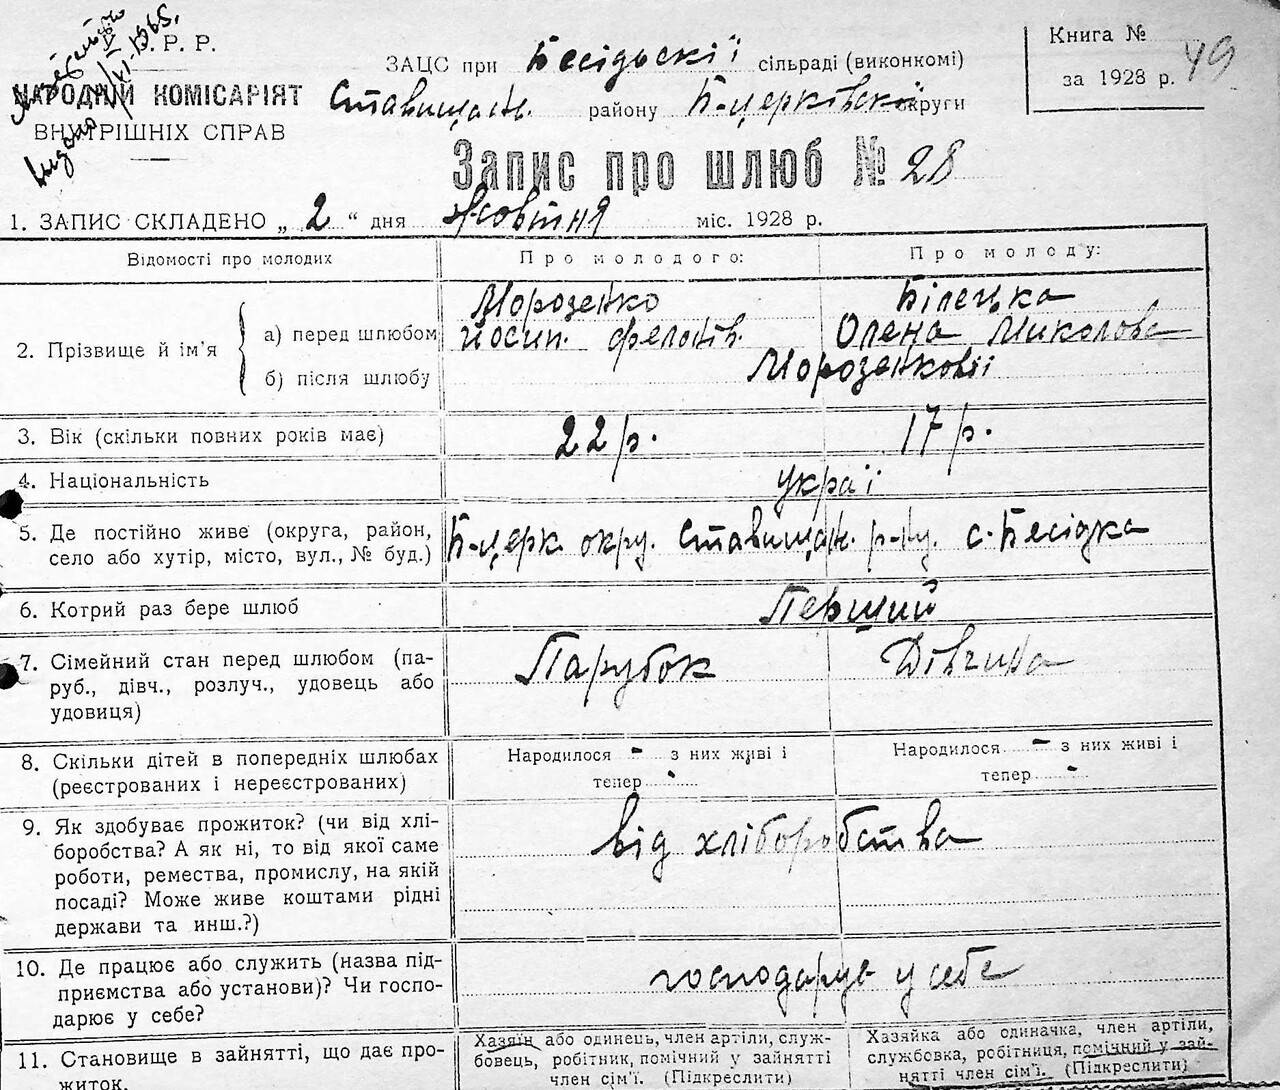 С. Р. Р.
НАРОДНИЙ КОМІСАРІЯТ
ВНУТРІШНІХ СПРАВ
ЗАЦС при Бесідській сільраді (виконкомі)
Ставищан. району Б-церківської округи
Книга № 49
за 1928 р.
Запис про шлюб № 28
1. ЗАПИС СКЛАДЕНО „ 2 “ дня Жовтня міс. 1928 р.
Відомості про молодих Про молодого: Про молоду:
2. Прізвище й ім'я
а) перед шлюбом Морозенко Білецька
Йосип. Олена Миколова
б) після шлюбу Морозенкові
3. Вік (скільки повних років має) 22 р. 17 р.
4. Національність украї
5. Де постійно живе (округа, район,
село або хутір, місто, вул., № буд.) Б-церк. окру. Ставищан. р-ну. с. Бесідка
6. Котрий раз бере шлюб Перший
7. Сімейний стан перед шлюбом (па-
руб., дівч., розлуч., удовець або
удовиця) Парубок Дівчина
8. Скільки дітей в попередніх шлюбах
(реєстрованих і нереєстрованих)
Народилося - з них живі і
тепер -
Народилося - з них живі і
тепер -
9. Як здобуває прожиток? (чи від хлі-
боробства? А як ні, то від якої саме
роботи, ремества, промислу, на якій
посаді? Може живе коштами рідні
держави та инш.?)
від хліборобства
10. Де працює або служить (назва під-
приємства або установи)? Чи госпо-
дарює у себе?
господарує у себе
11. Становище в зайнятті, що дає про-
житок.
Хазяїн або одинець, член артіли, служ-
бовець, робітник, помічний у зайнятті
член сім'ї. (Підкреслити)
Хазяйка або одиначка, член артіли,
службовка, робітниця, помічний у зай-
нятті член сім'ї. (Підкреслити)